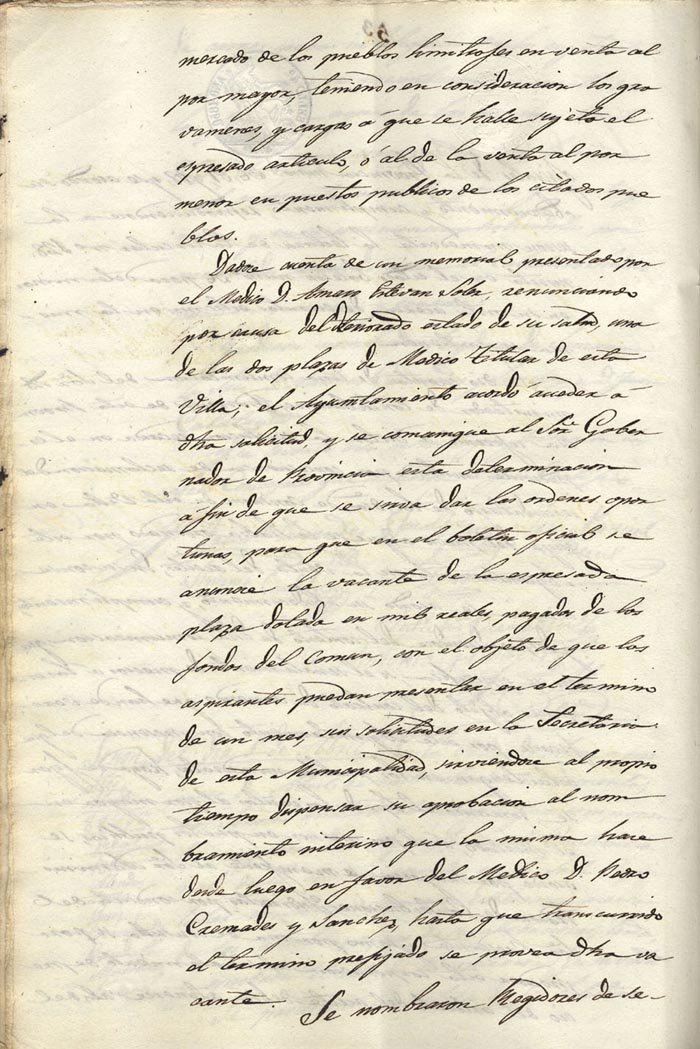 mercado de los pueblos limitrofes en venta al
por mayor, teniendo en consideracion los gra
vamenes, y cargas á que se halle sujeto el
espresado articulo, ó al de la venta al por
menor en puestos publicos de los citados pue
blos.
Dadose cuenta de un memorial presentado por
el Medico D. Amaro Estevan Soler, renunciando
por causa del deteriorado estado de su salud, una
de las dos plazas de Medico Titular de esta
Villa; el Ayuntamiento acordó acceder á
dha solicitud, y se comunique al Sor. Gober
nador de Provincia esta determinacion
a fin de que se sirva dar las ordenes opor
tunas, para que en el boletin oficial se
anuncie la vacante de la espresada
plaza dotada en mil reales, pagados de los
fondos del Comun, con el objeto de que los
aspirantes puedan presentar en el termino
de un mes, sus solicitudes en la Secretaria
de esta Municipalidad, sirviendose al propio
tiempo dispensar su aprobacion al nom
bramiento interino que la misma hace
desde luego en favor del Medico D. Pedro
Cremades y Sanchez, hasta que transcurrido
el termino prefijado se provea dha va
cante.
Se nombraron Regidores de se-